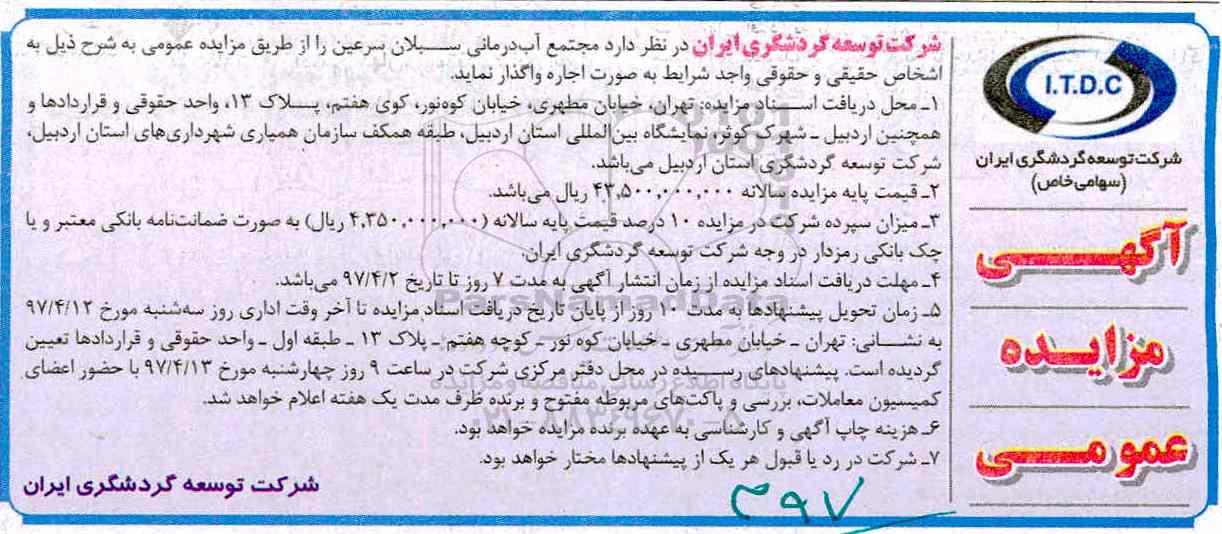 I.T.D.C
شرکت توسعه گردشگری ایران
(سهامی خاص)
آگهی
مزایده
عمومی
شرکت توسعه گردشگری ایران در نظر دارد مجتمع آب‌درمانی سبلان سرعین را از طریق مزایده عمومی به شرح ذیل به
اشخاص حقیقی و حقوقی واجد شرایط به صورت اجاره واگذار نماید.
۱ـ محل دریافت اسناد مزایده: تهران، خیابان مطهری، خیابان کوه‌نور، کوی هفتم، پلاک ۱۳، واحد حقوقی و قراردادها و
همچنین اردبیل ـ شهرک کوثر، نمایشگاه بین‌المللی استان اردبیل، طبقه همکف سازمان همیاری شهرداری‌های استان اردبیل،
شرکت توسعه گردشگری استان اردبیل می‌باشد.
۲ـ قیمت پایه مزایده سالانه ۴۳,۵۰۰,۰۰۰,۰۰۰ ریال می‌باشد.
۳ـ میزان سپرده شرکت در مزایده ۱۰ درصد قیمت پایه سالانه (۴,۳۵۰,۰۰۰,۰۰۰ ریال) به صورت ضمانت‌نامه بانکی معتبر و یا
چک بانکی رمزدار در وجه شرکت توسعه گردشگری ایران.
۴ـ مهلت دریافت اسناد مزایده از زمان انتشار آگهی به مدت ۷ روز تا تاریخ ۹۷/۴/۲ می‌باشد.
ParsNamadData
۵ـ زمان تحویل پیشنهادها به مدت ۱۰ روز از پایان تاریخ دریافت اسناد مزایده تا آخر وقت اداری روز سه‌شنبه مورخ ۹۷/۴/۱۲
به نشانی: تهران ـ خیابان مطهری ـ خیابان کوه نور ـ کوچه هفتم ـ پلاک ۱۳ ـ طبقه اول ـ واحد حقوقی و قراردادها تعیین
گردیده است. پیشنهادهای رسیده در محل دفتر مرکزی شرکت در ساعت ۹ روز چهارشنبه مورخ ۹۷/۴/۱۳ با حضور اعضای
پایگاه اطلاع رسانی مناقصه و مزایده
کمیسیون معاملات، بررسی و پاکت‌های مربوطه مفتوح و برنده ظرف مدت یک هفته اعلام خواهد شد.
۶ـ هزینه چاپ آگهی و کارشناسی به عهده برنده مزایده خواهد بود.
۷ـ شرکت در رد یا قبول هر یک از پیشنهادها مختار خواهد بود.
شرکت توسعه گردشگری ایران
۳۹۷